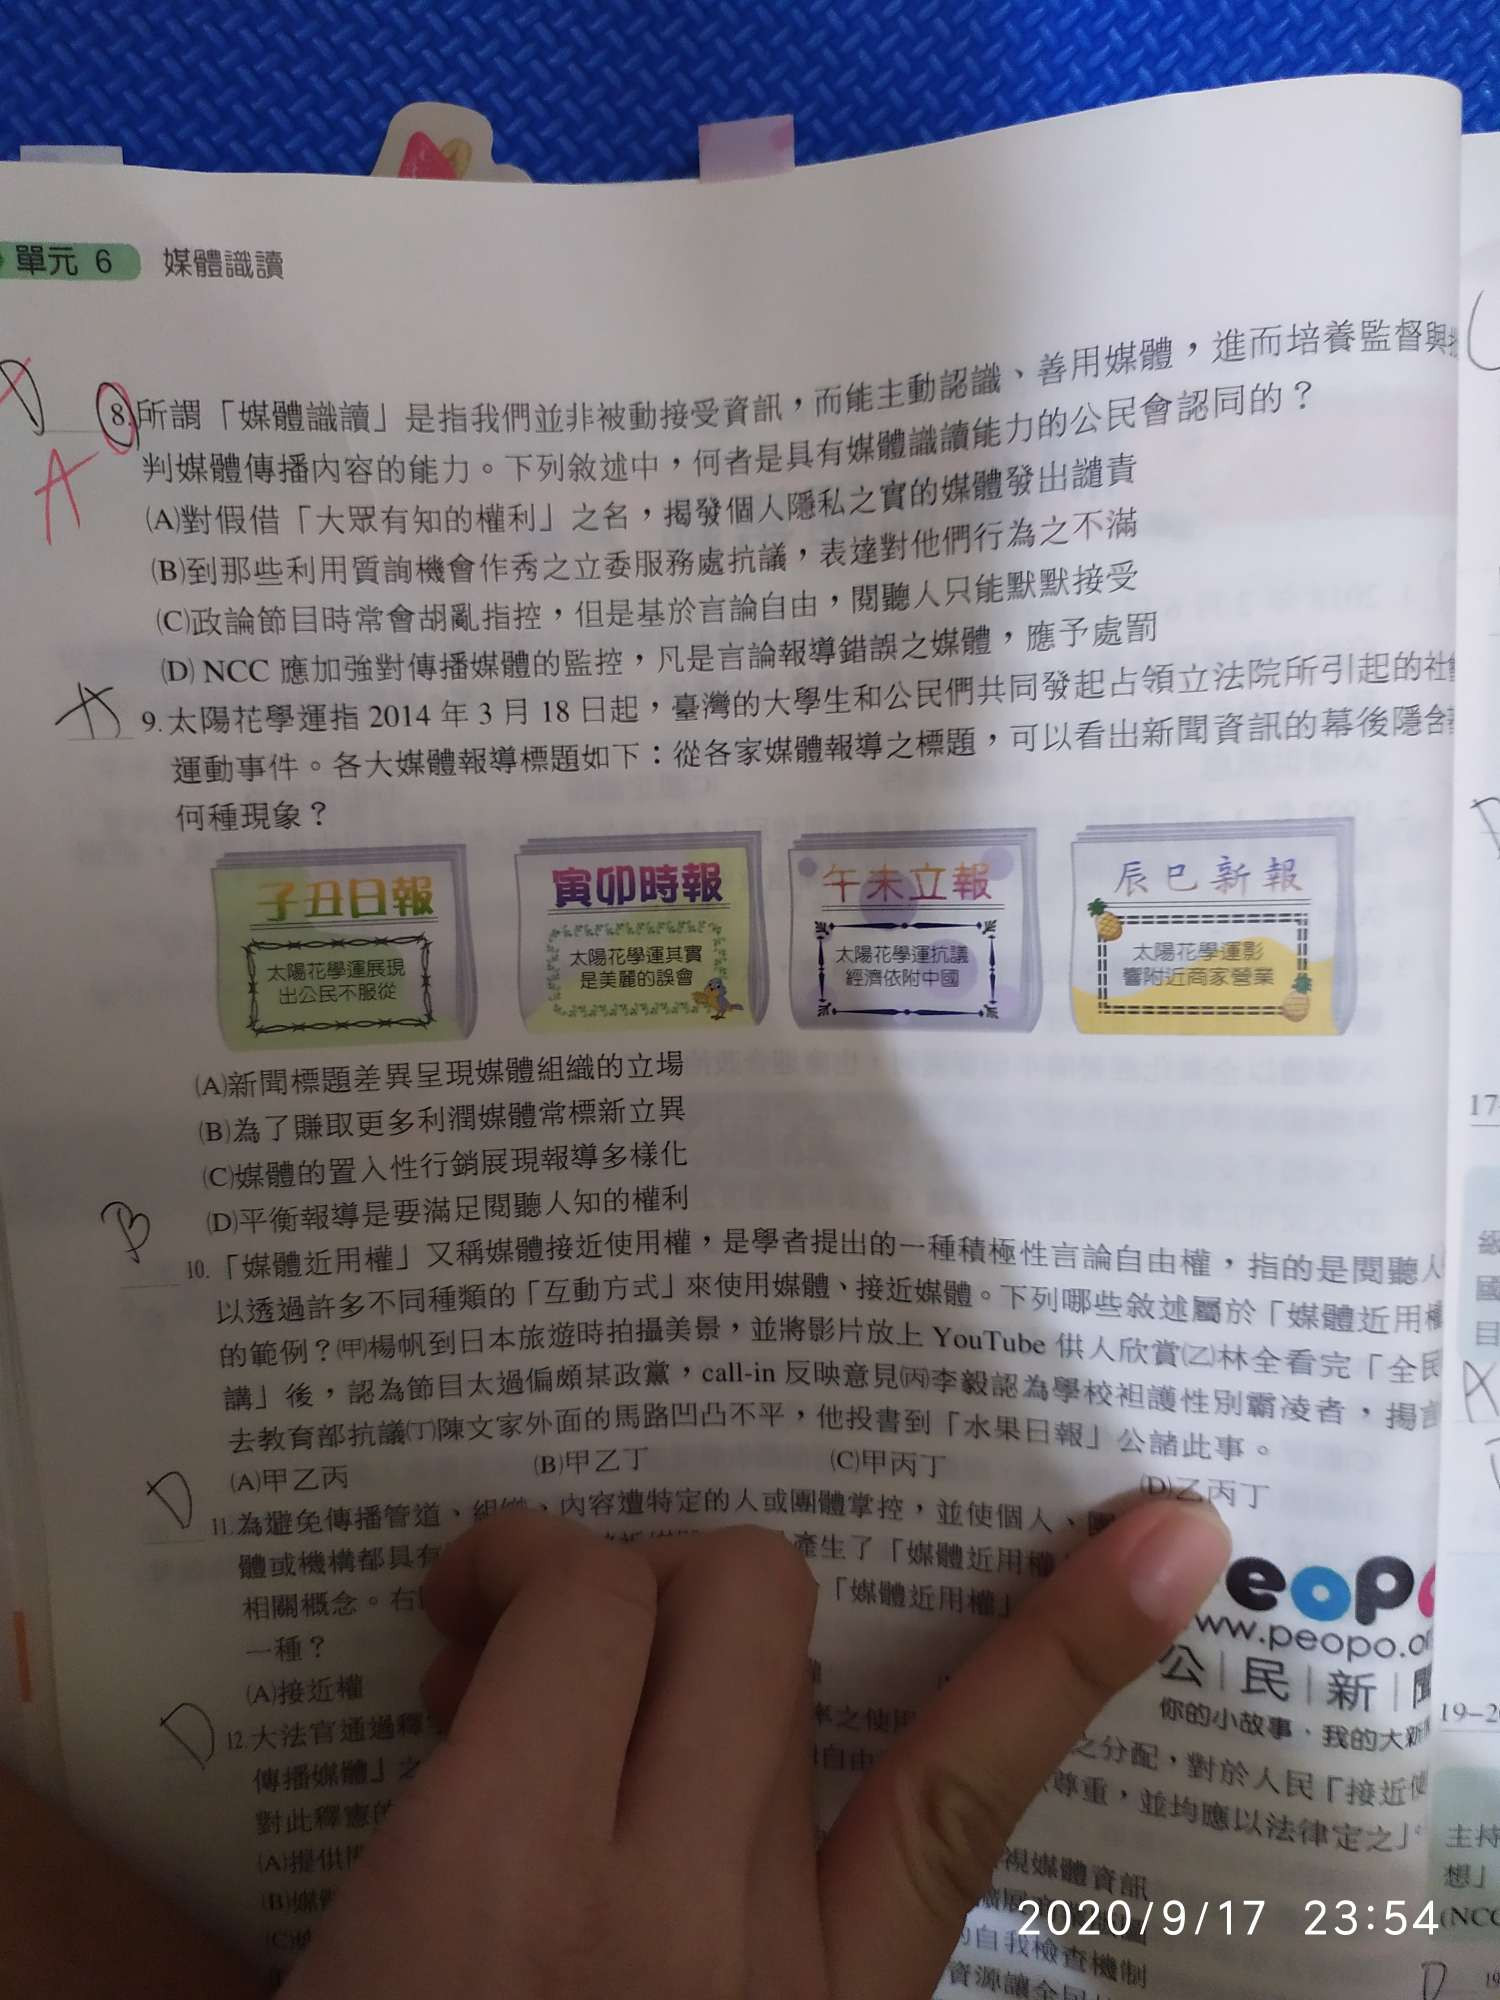 單元 6 媒體識讀
8.所謂「媒體識讀」是指我們並非被動接受資訊，而能主動認識、善用媒體，進而培養監督與
A
判媒體傳播內容的能力。下列敘述中，何者是具有媒體識讀能力的公民會認同的？
(A)對假借「大眾有知的權利」之名，揭發個人隱私之實的媒體發出譴責
(B)到那些利用質詢機會作秀之立委服務處抗議，表達對他們行為之不滿
(C)政論節目時常會胡亂指控，但是基於言論自由，閱聽人只能默默接受
(D) NCC 應加強對傳播媒體的監控，凡是言論報導錯誤之媒體，應予處罰
A 9.太陽花學運指 2014 年 3 月 18 日起，臺灣的大學生和公民們共同發起占領立法院所引起的社
運動事件。各大媒體報導標題如下：從各家媒體報導之標題，可以看出新聞資訊的幕後隱含
何種現象？
子丑日報
太陽花學運展現
出公民不服從
寅卯時報
太陽花學運其實
是美麗的誤會
午未立報
太陽花學運抗議
經濟依附中國
辰巳新報
太陽花學運影
響附近商家營業
(A)新聞標題差異呈現媒體組織的立場
(B)為了賺取更多利潤媒體常標新立異
(C)媒體的置入性行銷展現報導多樣化
(D)平衡報導是要滿足閱聽人知的權利
B 10.「媒體近用權」又稱媒體接近使用權，是學者提出的一種積極性言論自由權，指的是閱聽人
以透過許多不同種類的「互動方式」來使用媒體、接近媒體。下列哪些敘述屬於「媒體近用權
的範例？(甲)楊帆到日本旅遊時拍攝美景，並將影片放上 YouTube 供人欣賞(乙)林全看完「全民
講」後，認為節目太過偏頗某政黨，call-in 反映意見(丙)李毅認為學校袒護性別霸凌者，揚言
去教育部抗議(丁)陳文家外面的馬路凹凸不平，他投書到「水果日報」公諸此事。
(A)甲乙丙 (B)甲乙丁 (C)甲丙丁 (D)乙丙丁
D 11.為避免傳播管道、組織、內容遭特定的人或團體掌控，並使個人、團
體或機構都具有 產生了「媒體近用權
相關概念。右 「媒體近用權」
一種？
(A)接近權
peopo
www.peopo.or
公|民|新|聞
你的小故事．我的大新
D 12.大法官通過釋 率之使用 之分配，對於人民「接近使
傳播媒體」之 自由 尊重，並均應以法律定之」
對此釋憲的
(A)提供 視媒體資訊
(B)媒
的自我檢查機制
資源讓全民
17
19-2
主持
想」
(NCC
D 19
2020/9/17 23:54